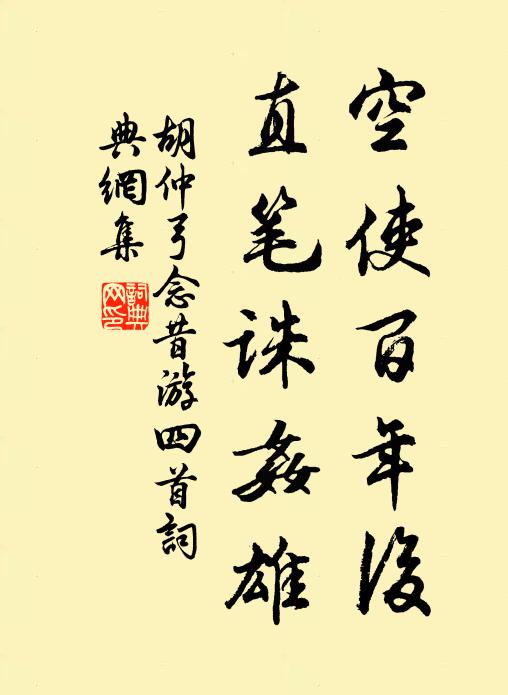 空使百年後
直笔誅姦雄
胡仲弓念昔游四首詞
典網集
詞典
网印